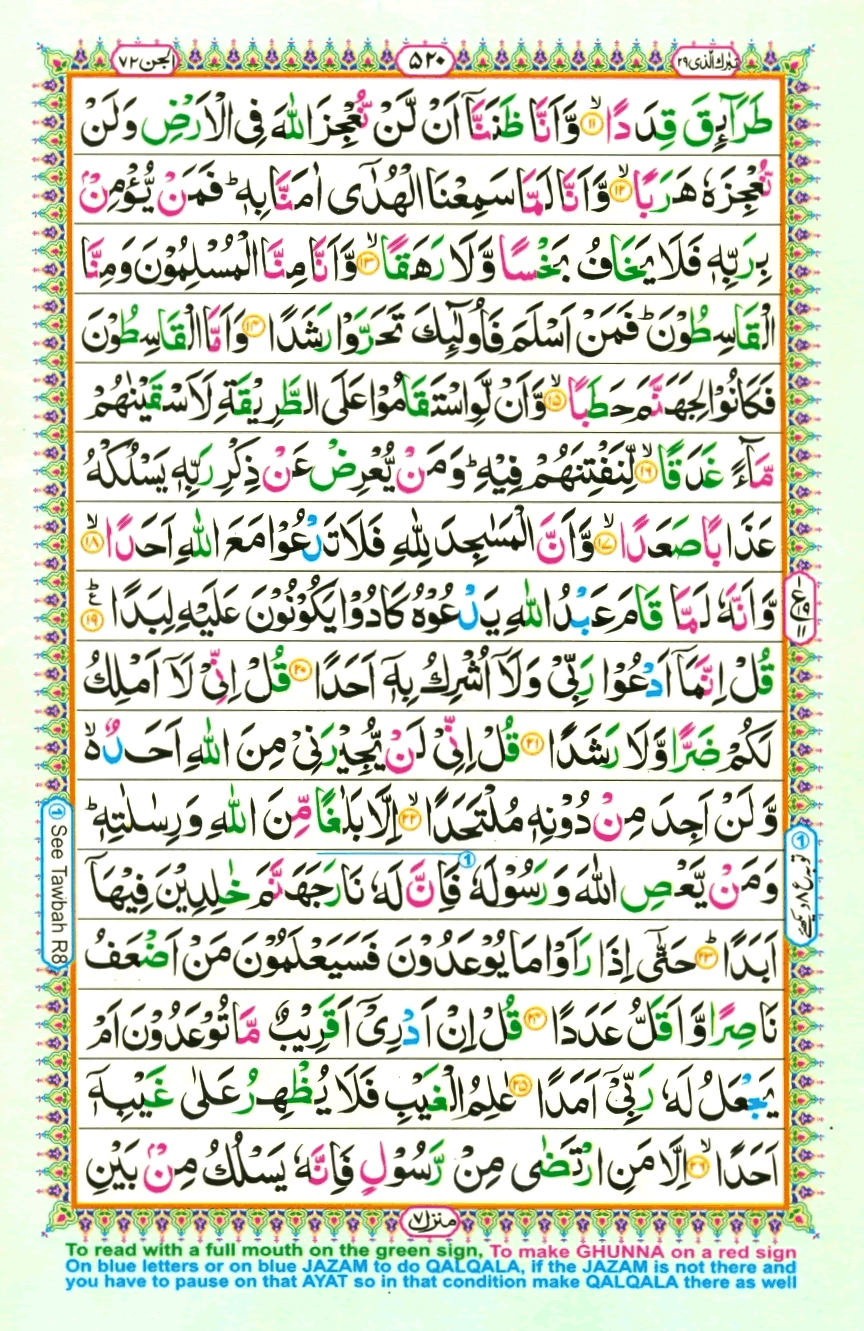 تبٰرك الّذی ۲۹
۵۲۰
الجن ۷۲
طَرَآئِقَ قِدَدًا ۙ‏﴿۱۱﴾ وَّاَنَّا ظَنَنَّاۤ اَنْ لَّنْ نُّعْجِزَ اللّٰهَ فِى الْاَرْضِ وَلَنْ
نُّعْجِزَهٗ هَرَبًا ۙ‏﴿۱۲﴾ وَّاَنَّا لَمَّا سَمِعْنَا الْهُدٰٓى اٰمَنَّا بِهٖ ؕ فَمَنْ يُّؤْمِنْۢ
بِرَبِّهٖ فَلَا يَخَافُ بَخْسًا وَّلَا رَهَقًا ۙ‏﴿۱۳﴾ وَّاَنَّا مِنَّا الْمُسْلِمُوْنَ وَمِنَّا
الْقَاسِطُوْنَ ؕ فَمَنْ اَسْلَمَ فَاُولٰٓئِكَ تَحَرَّوْا رَشَدًا ﴿۱۴﴾ وَاَمَّا الْقَاسِطُوْنَ
فَكَانُوْا لِجَهَنَّمَ حَطَبًا ۙ‏﴿۱۵﴾ وَّاَنْ لَّوِ اسْتَقَامُوْا عَلَى الطَّرِيْقَةِ لَاَسْقَيْنٰهُمْ
مَّآءً غَدَقًا ۙ‏﴿۱۶﴾ لِّنَفْتِنَهُمْ فِيْهِ ؕ وَمَنْ يُّعْرِضْ عَنْ ذِكْرِ رَبِّهٖ يَسْلُكْهُ
عَذَابًا صَعَدًا ۙ‏﴿۱۷﴾ وَّاَنَّ الْمَسٰجِدَ لِلّٰهِ فَلَا تَدْعُوْا مَعَ اللّٰهِ اَحَدًا ۙ‏﴿۱۸﴾
وَّاَنَّهٗ لَمَّا قَامَ عَبْدُ اللّٰهِ يَدْعُوْهُ كَادُوْا يَكُوْنُوْنَ عَلَيْهِ لِبَدًا ؕ ع ﴿۱۹﴾
ع ۱۹ ۱۱
قُلْ اِنَّمَاۤ اَدْعُوْا رَبِّىْ وَلَاۤ اُشْرِكُ بِهٖۤ اَحَدًا ﴿۲۰﴾ قُلْ اِنِّىْ لَاۤ اَمْلِكُ
لَكُمْ ضَرًّا وَّلَا رَشَدًا ﴿۲۱﴾ قُلْ اِنِّىْ لَنْ يُّجِيْرَنِىْ مِنَ اللّٰهِ اَحَدٌ ۙ
وَّلَنْ اَجِدَ مِنْ دُوْنِهٖ مُلْتَحَدًا ۙ‏﴿۲۲﴾ اِلَّا بَلٰغًا مِّنَ اللّٰهِ وَرِسٰلٰتِهٖ ؕ
وَمَنْ يَّعْصِ اللّٰهَ وَرَسُوْلَهٗ ① فَاِنَّ لَهٗ نَارَ جَهَنَّمَ خٰلِدِيْنَ فِيْهَاۤ
① See Tawbah R8
اَبَدًا ؕ‏﴿۲۳﴾ حَتّٰٓى اِذَا رَاَوْا مَا يُوْعَدُوْنَ فَسَيَعْلَمُوْنَ مَنْ اَضْعَفُ
نَاصِرًا وَّاَقَلُّ عَدَدًا ﴿۲۴﴾ قُلْ اِنْ اَدْرِىْۤ اَقَرِيْبٌ مَّا تُوْعَدُوْنَ اَمْ
يَجْعَلُ لَهٗ رَبِّىْۤ اَمَدًا ﴿۲۵﴾ عٰلِمُ الْغَيْبِ فَلَا يُظْهِرُ عَلٰى غَيْبِهٖۤ
اَحَدًا ۙ‏﴿۲۶﴾ اِلَّا مَنِ ارْتَضٰى مِنْ رَّسُوْلٍ فَاِنَّهٗ يَسْلُكُ مِنْۢ بَيْنِ
منزل ۷
To read with a full mouth on the green sign, To make GHUNNA on a red sign
On blue letters or on blue JAZAM to do QALQALA, if the JAZAM is not there and
you have to pause on that AYAT so in that condition make QALQALA there as well